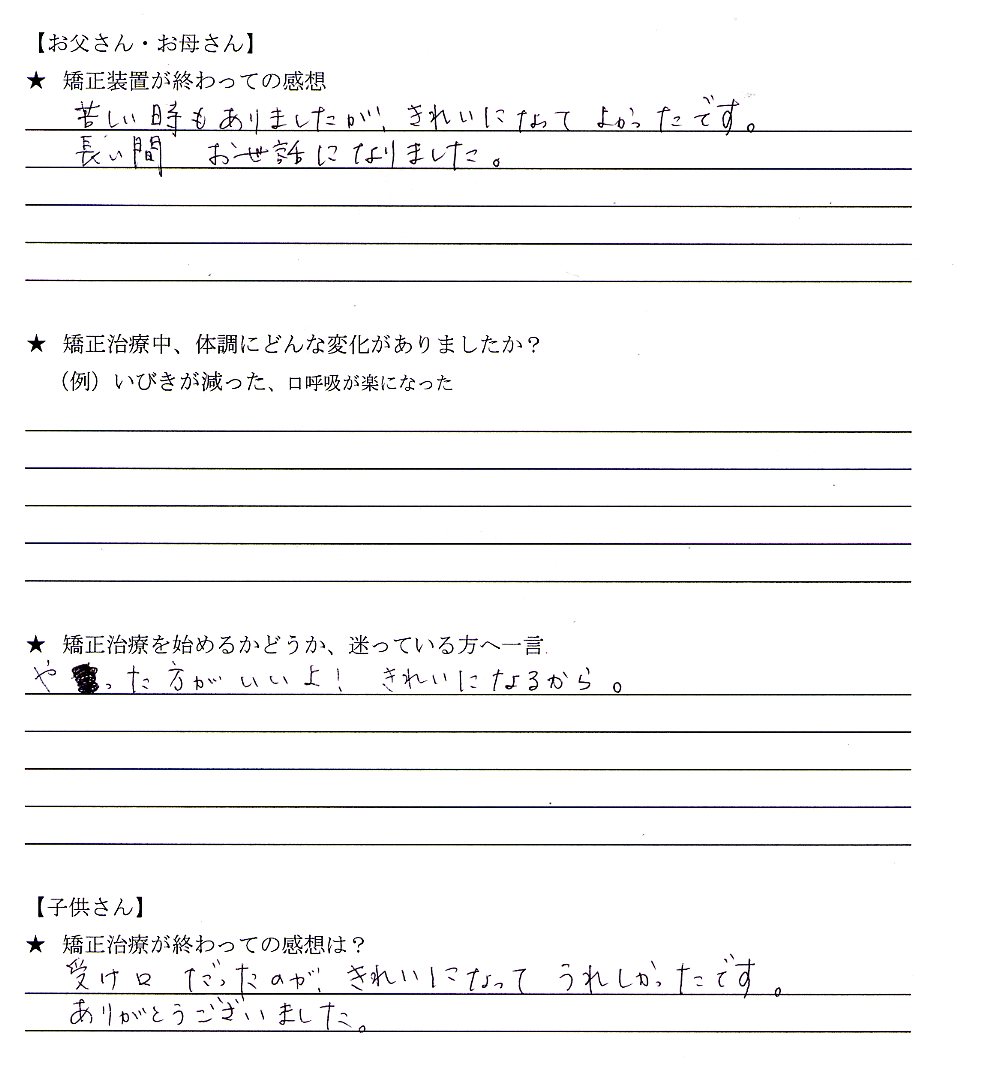 【お父さん・お母さん】
★ 矯正装置が終わっての感想
苦しい時もありましたが、きれいになって よかったです。
長い間 お世話になりました。
★ 矯正治療中、体調にどんな変化がありましたか？
（例）いびきが減った、口呼吸が楽になった
★ 矯正治療を始めるかどうか、迷っている方へ一言
やった方がいいよ！ きれいになるから。
【子供さん】
★ 矯正治療が終わっての感想は？
受け口 だったのが、きれいになって うれしかったです。
ありがとうございました。